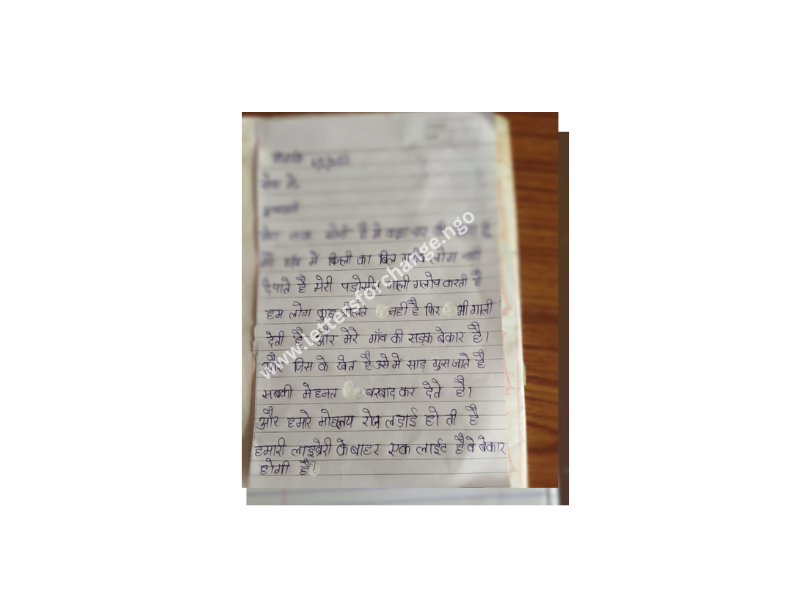 सेवा में,
मेरा नाम
मेरे गांव में बिजली का बिल गरीब लोग नहीं
देपाते है मेरी पड़ोसी गाली गलोच करती है
हम लोग कुछ बोलते नहीं है फिर भी गाली
देती है और मेरे गाँव की सड़क बेकार है।
और जिस के खेत है उसे मे साड़ घुस जाते है
सबकी मेहनत बरबाद कर देते है?
और हमारे मोहल्लय रोज लड़ाई हो ती है
हमारी लाइब्रेरी के बाहर एक लाईट है वे बेकार
होगी है?
www.lettersforchange.ngo